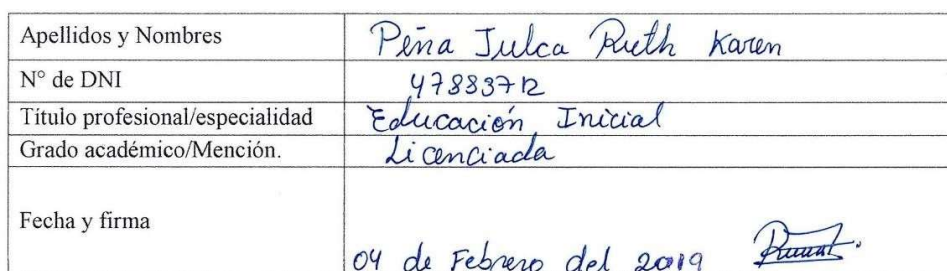 Apellidos y Nombres Peña Julca Ruth Karen
N° de DNI 47883712
Título profesional/especialidad Educación Inicial
Grado académico/Mención. Licenciada
Fecha y firma
04 de Febrero del 2019